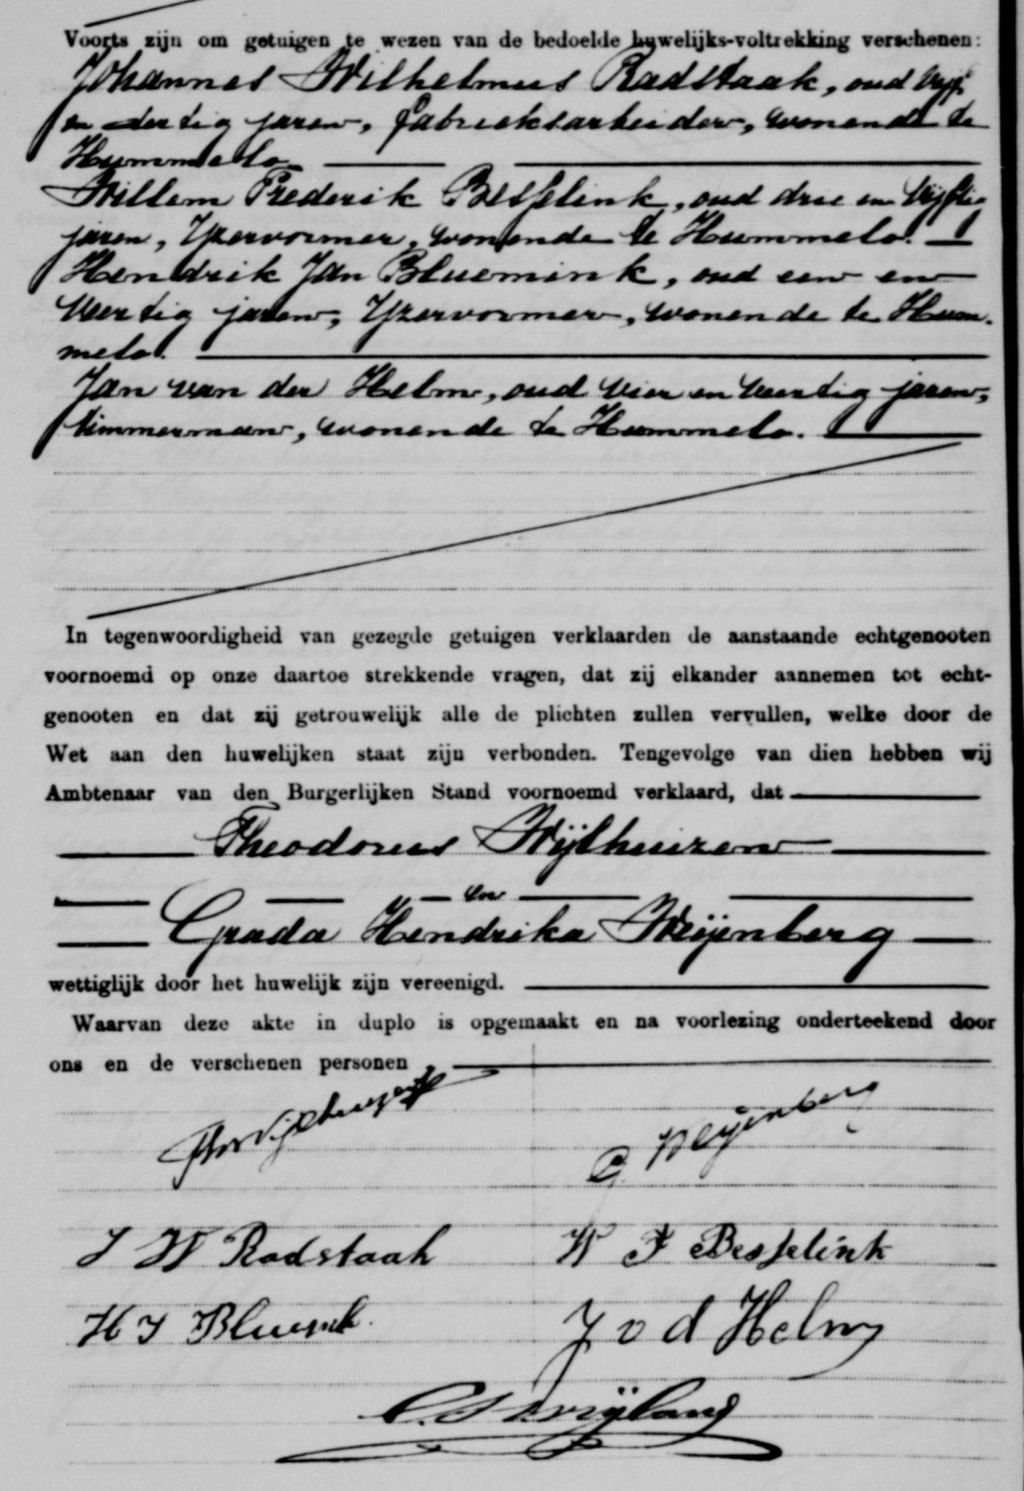 Voorts zijn om getuigen te wezen van de bedoelde huwelijks-voltrekking verschenen:
Johannes Wilhelmus Radstaak, oud vijf
en dertig jaren, fabrieksarbeider, wonende te
Hummelo
Willem Frederik Besselink, oud drie en vijftig
jaren, Yzervormer, wonende te Hummelo.
Hendrik Jan Bluemink, oud een en
veertig jaren, Yzervormer, wonende te Hum-
melo.
Jan van der Helm, oud vier en veertig jaren,
timmerman, wonende te Hummelo.
In tegenwoordigheid van gezegde getuigen verklaarden de aanstaande echtgenooten
voornoemd op onze daartoe strekkende vragen, dat zij elkander aannemen tot echt-
genooten en dat zij getrouwelijk alle de plichten zullen vervullen, welke door de
Wet aan den huwelijken staat zijn verbonden. Tengevolge van dien hebben wij
Ambtenaar van den Burgerlijken Stand voornoemd verklaard, dat
Theodorus Wijlhuizen
en
Grada Hendrika Weijenberg
wettiglijk door het huwelijk zijn vereenigd.
Waarvan deze akte in duplo is opgemaakt en na voorlezing onderteekend door
ons en de verschenen personen
G Weijenberg
J W Radstaak W F Besselink
H J Bluemink J v d Helm